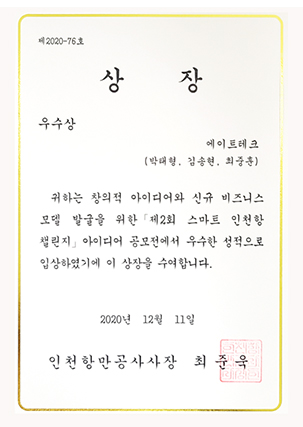 제2020-76호
상 장
우수상
에이트테크
(박태형, 김송현, 최중훈)
귀하는 창의적 아이디어와 신규 비즈니스
모델 발굴을 위한 「제2회 스마트 인천항
챌린지」 아이디어 공모전에서 우수한 성적으로
입상하였기에 이 상장을 수여합니다.
2020년 12월 11일
인천항만공사사장 최준욱